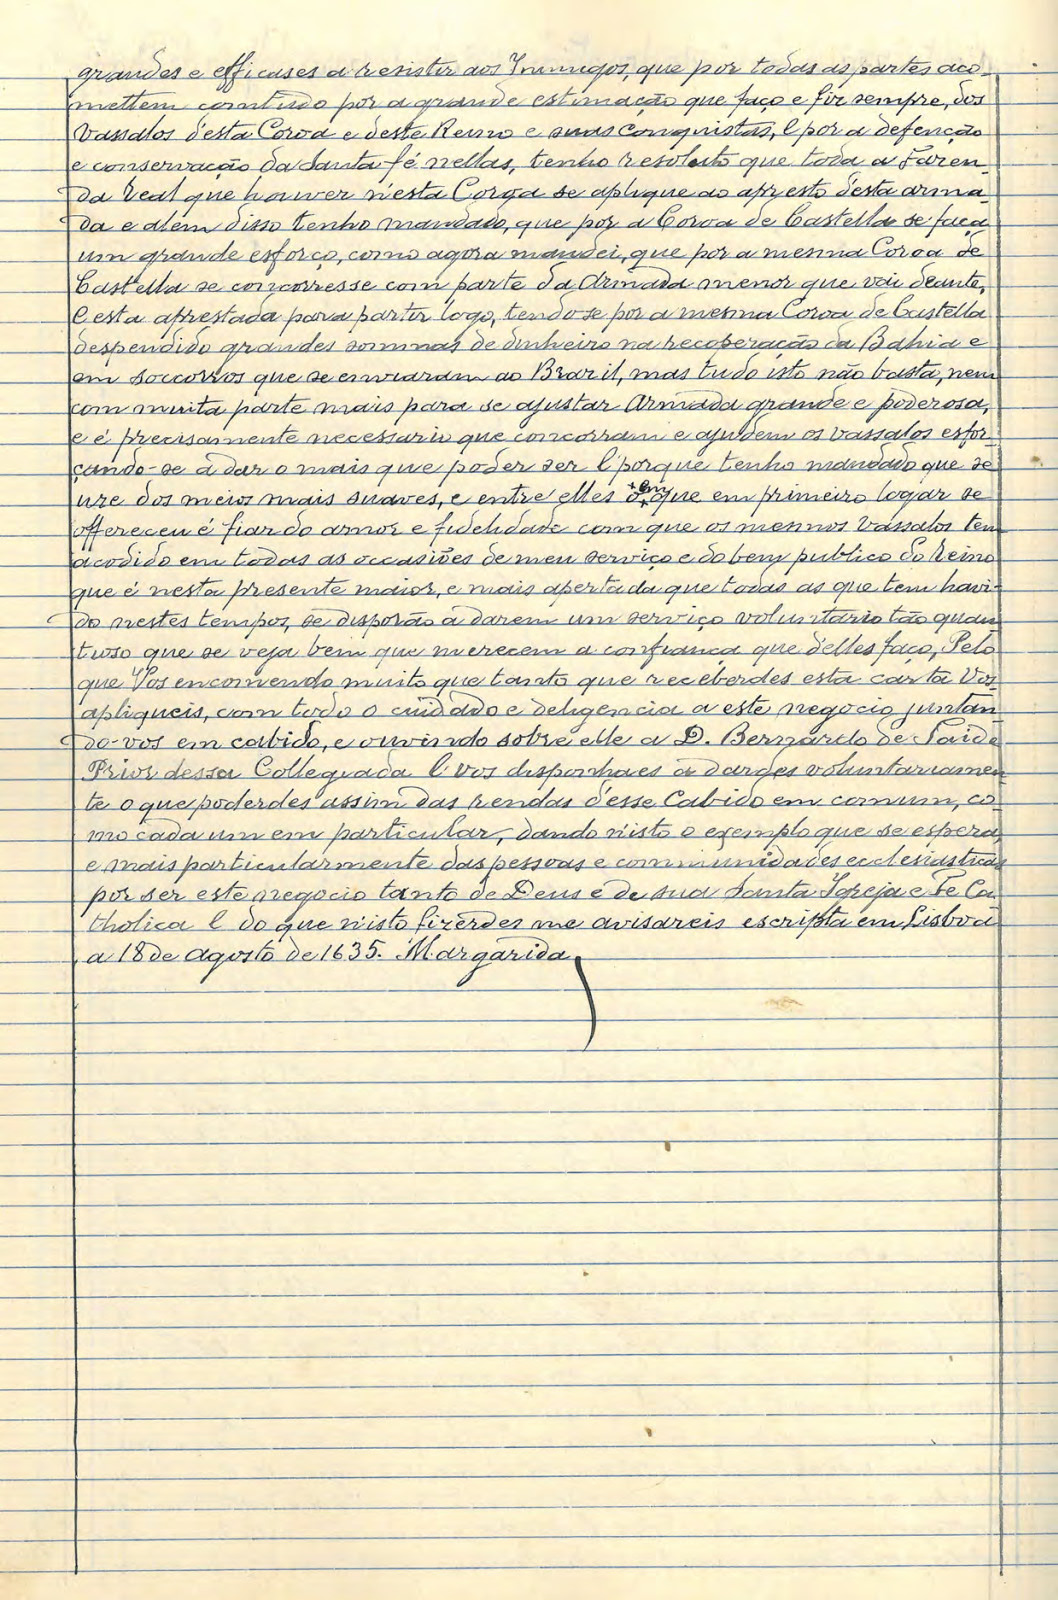 grandes e efficases a resistir aos Inimigos, que por todas as partes aco-
mettem comtudo por a grande estimação que faço e fiz sempre, dos
Vassalos d'esta Coroa e deste Reino e suas Conquistas, E por a defenção
e conservação da Santa fé nellas, tenho resoluto que toda a Fazen-
da Real que houver n'esta Coroa se aplique ao apresto d'esta arma-
da e alem disso tenho mandado, que por a Coroa de Castella se faça
um grande esforço, como agora mandei, que por a mesma Coroa de
Castella se concorresse com parte da Armada menor que vai deante,
E esta aprestada para partir logo, tendo-se por a mesma Coroa de Castella
despendido grandes sommas de dinheiro na recoperação da Bahia e
em soccorros que se enviaram ao Brazil, mas tudo isto não basta, nem
com muita parte mais para se ajustar Armada grande e poderosa,
e é precisamente necessario que concorram e ajudem os vassalos esfor-
çando-se a dar o mais que poder ser E porque tenho mandado que se
use dos meios mais suaves, e entre elles o em que em primeiro logar se
offereceu é fiar do amor e fidelidade com que os mesmos vassalos tem
acodido em todas as occasiões de meu serviço e do bem publico do Reino
que é nesta presente maior, e mais apertada que todas as que tem havi-
do nestes tempos, se disporão a darem um serviço voluntario tão quan-
tioso que se veja bem que merecem a confiança que d'elles faço, Pelo
que Vos encomendo muito que tanto que receberdes esta carta Vos
apliqueis, com todo o cuidado e deligencia a este negocio juntan-
do-vos em cabido, e ouvindo sobre elle a D. Bernardo de Taide
Prior dessa Collegiada E vos disponhaes a dardes voluntariamen-
te o que poderdes assim das rendas d'esse Cabido em comum, co-
mo cada um em particular, dando n'isto o exemplo que se espera,
e mais particularmente das pessoas e communidades ecclesiasticas
por ser este negocio tanto de Deus e de sua Santa Igreja e Fé Ca-
tholica E do que n'isto fizerdes me avisareis escripta em Lisboa
a 18 de Agosto de 1635. Margarida